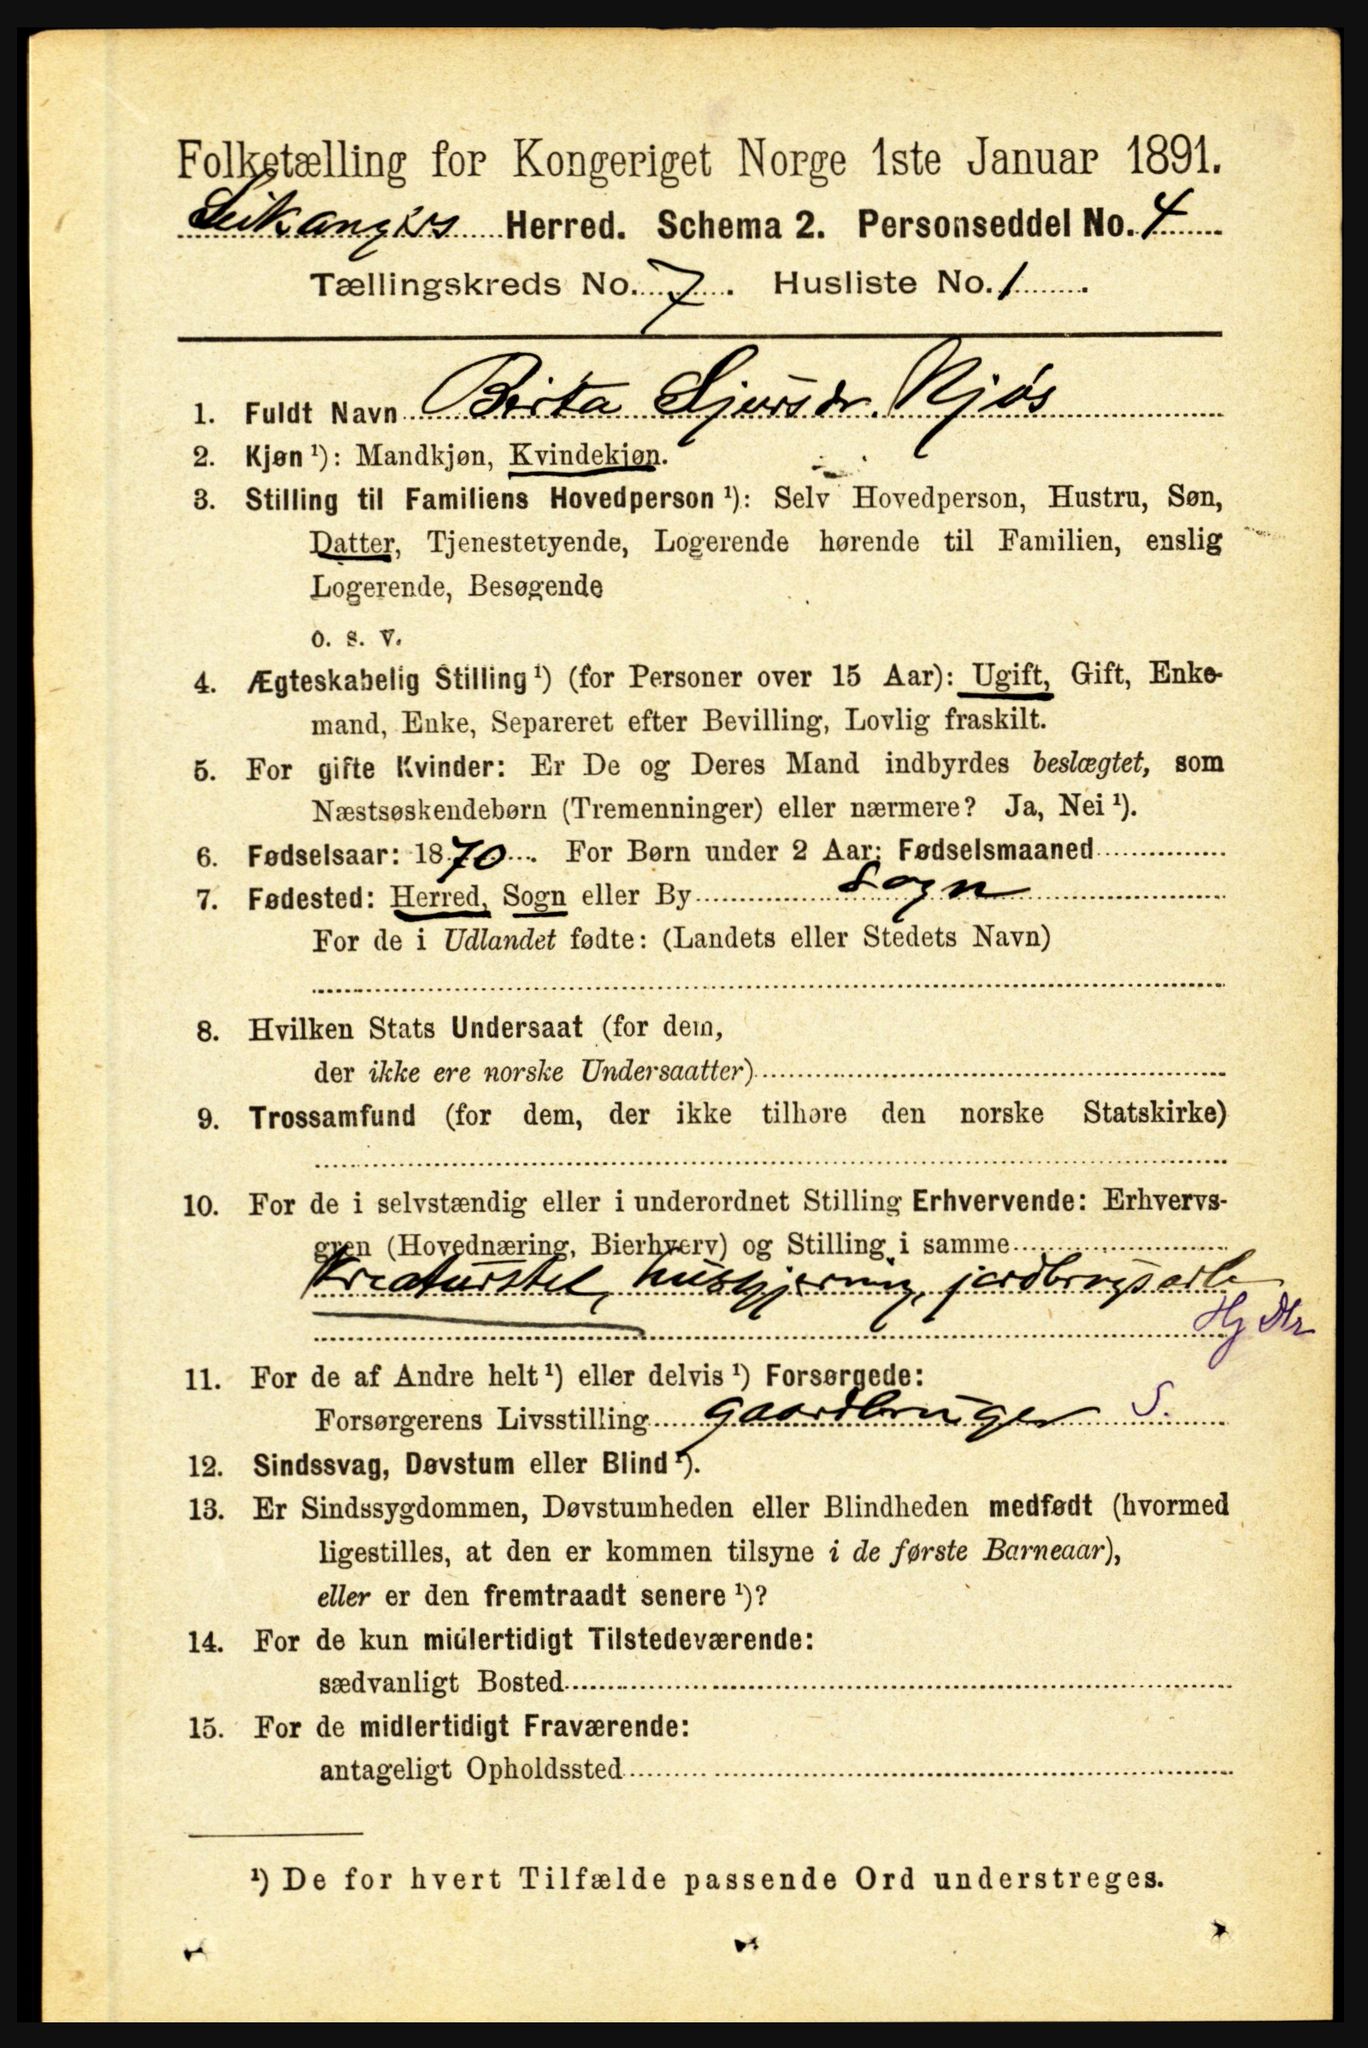 Folketælling for Kongeriget Norge 1ste Januar 1891.
Leikangers Herred. Schema 2. Personseddel No. 4
Tællingskreds No. 7. Husliste No. 1.
1. Fuldt Navn Birta Sjursdr. Njøs
2. Kjøn ¹): Mandkjøn, Kvindekjøn.
3. Stilling til Familiens Hovedperson ¹): Selv Hovedperson, Hustru, Søn,
Datter, Tjenestetyende, Logerende hørende til Familien, enslig
Logerende, Besøgende
o. s. v.
4. Ægteskabelig Stilling ¹) (for Personer over 15 Aar): Ugift, Gift, Enke-
mand, Enke, Separeret efter Bevilling, Lovlig fraskilt.
5. For gifte Kvinder: Er De og Deres Mand indbyrdes beslægtet, som
Næstsøskendebørn (Tremenninger) eller nærmere? Ja, Nei ¹).
6. Fødselsaar: 1870. For Børn under 2 Aar: Fødselsmaaned
7. Fødested: Herred, Sogn eller By Sogn
For de i Udlandet fødte: (Landets eller Stedets Navn)
8. Hvilken Stats Undersaat (for dem,
der ikke ere norske Undersaatter)
9. Trossamfund (for dem, der ikke tilhøre den norske Statskirke)
10. For de i selvstændig eller i underordnet Stilling Erhvervende: Erhvervs-
gren (Hovednæring, Bierhverv) og Stilling i samme
Kreaturstel, husgjerning, jordbrugsarb
Hj Dtr
11. For de af Andre helt ¹) eller delvis ¹) Forsørgede:
Forsørgerens Livsstilling gaardbruger S.
12. Sindssvag, Døvstum eller Blind ¹).
13. Er Sindssygdommen, Døvstumheden eller Blindheden medfødt (hvormed
ligestilles, at den er kommen tilsyne i de første Barneaar),
eller er den fremtraadt senere ¹)?
14. For de kun midlertidigt Tilstedeværende:
sædvanligt Bosted
15. For de midlertidigt Fraværende:
antageligt Opholdssted
¹) De for hvert Tilfælde passende Ord understreges.